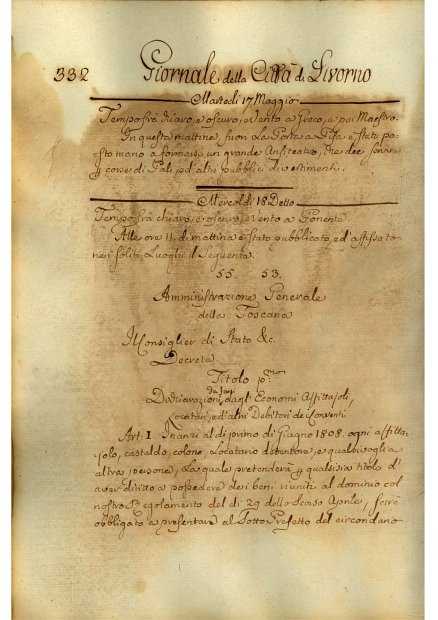 332 Giornale della Città di Livorno
Martedì 17 Maggio
Tempo frà chiaro, e oscuro, e Vento a Greco, e poi Maestro.
In questa mattina, fuori La Porta a Pisa è stato po-
sto mano a formarsi un grande Anfiteatro, che dee servire
p corse di Pali, ed altri pubblici divertimenti.
Mercoldì 18 Detto
Tempo frà chiaro, e oscuro, e vento a Ponente.
Alle ore 11. di mattina è stato pubblicato, ed affissato
ne i soliti Luoghi il Seguente.
55. 53.
Amministrazione Generale
della Toscana
Il Consiglier di Stato &c.
Decreta.
Titolo p.mo
Dichiarazioni da farsi dagli Economi Affittajoli,
Locatarj, ed altri Debitori dei Conventi
Art: I. Inanzi al dì primo di Giugno 1808. ogni affitta-
jolo, castaldo, colono, Locatario detentore, e qualsivoglia
altra persona, La quale pretenderà p qualsisia titolo d'
aver diritto a possedere dei beni riuniti al dominio col
nostro Regolamento del dì 29 dello Scaso Aprile, sarà
obbligato a presentare al Sotto Prefetto del circondario